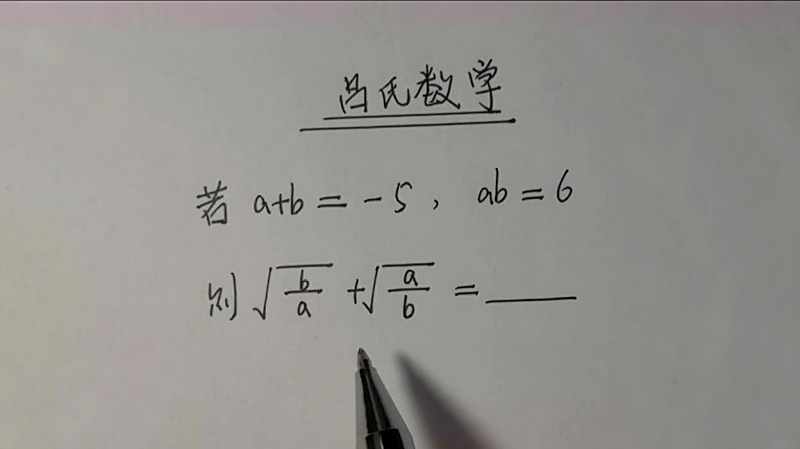 吕氏数学
若 a+b=-5, ab=6
则 √(b/a) + √(a/b) = ____